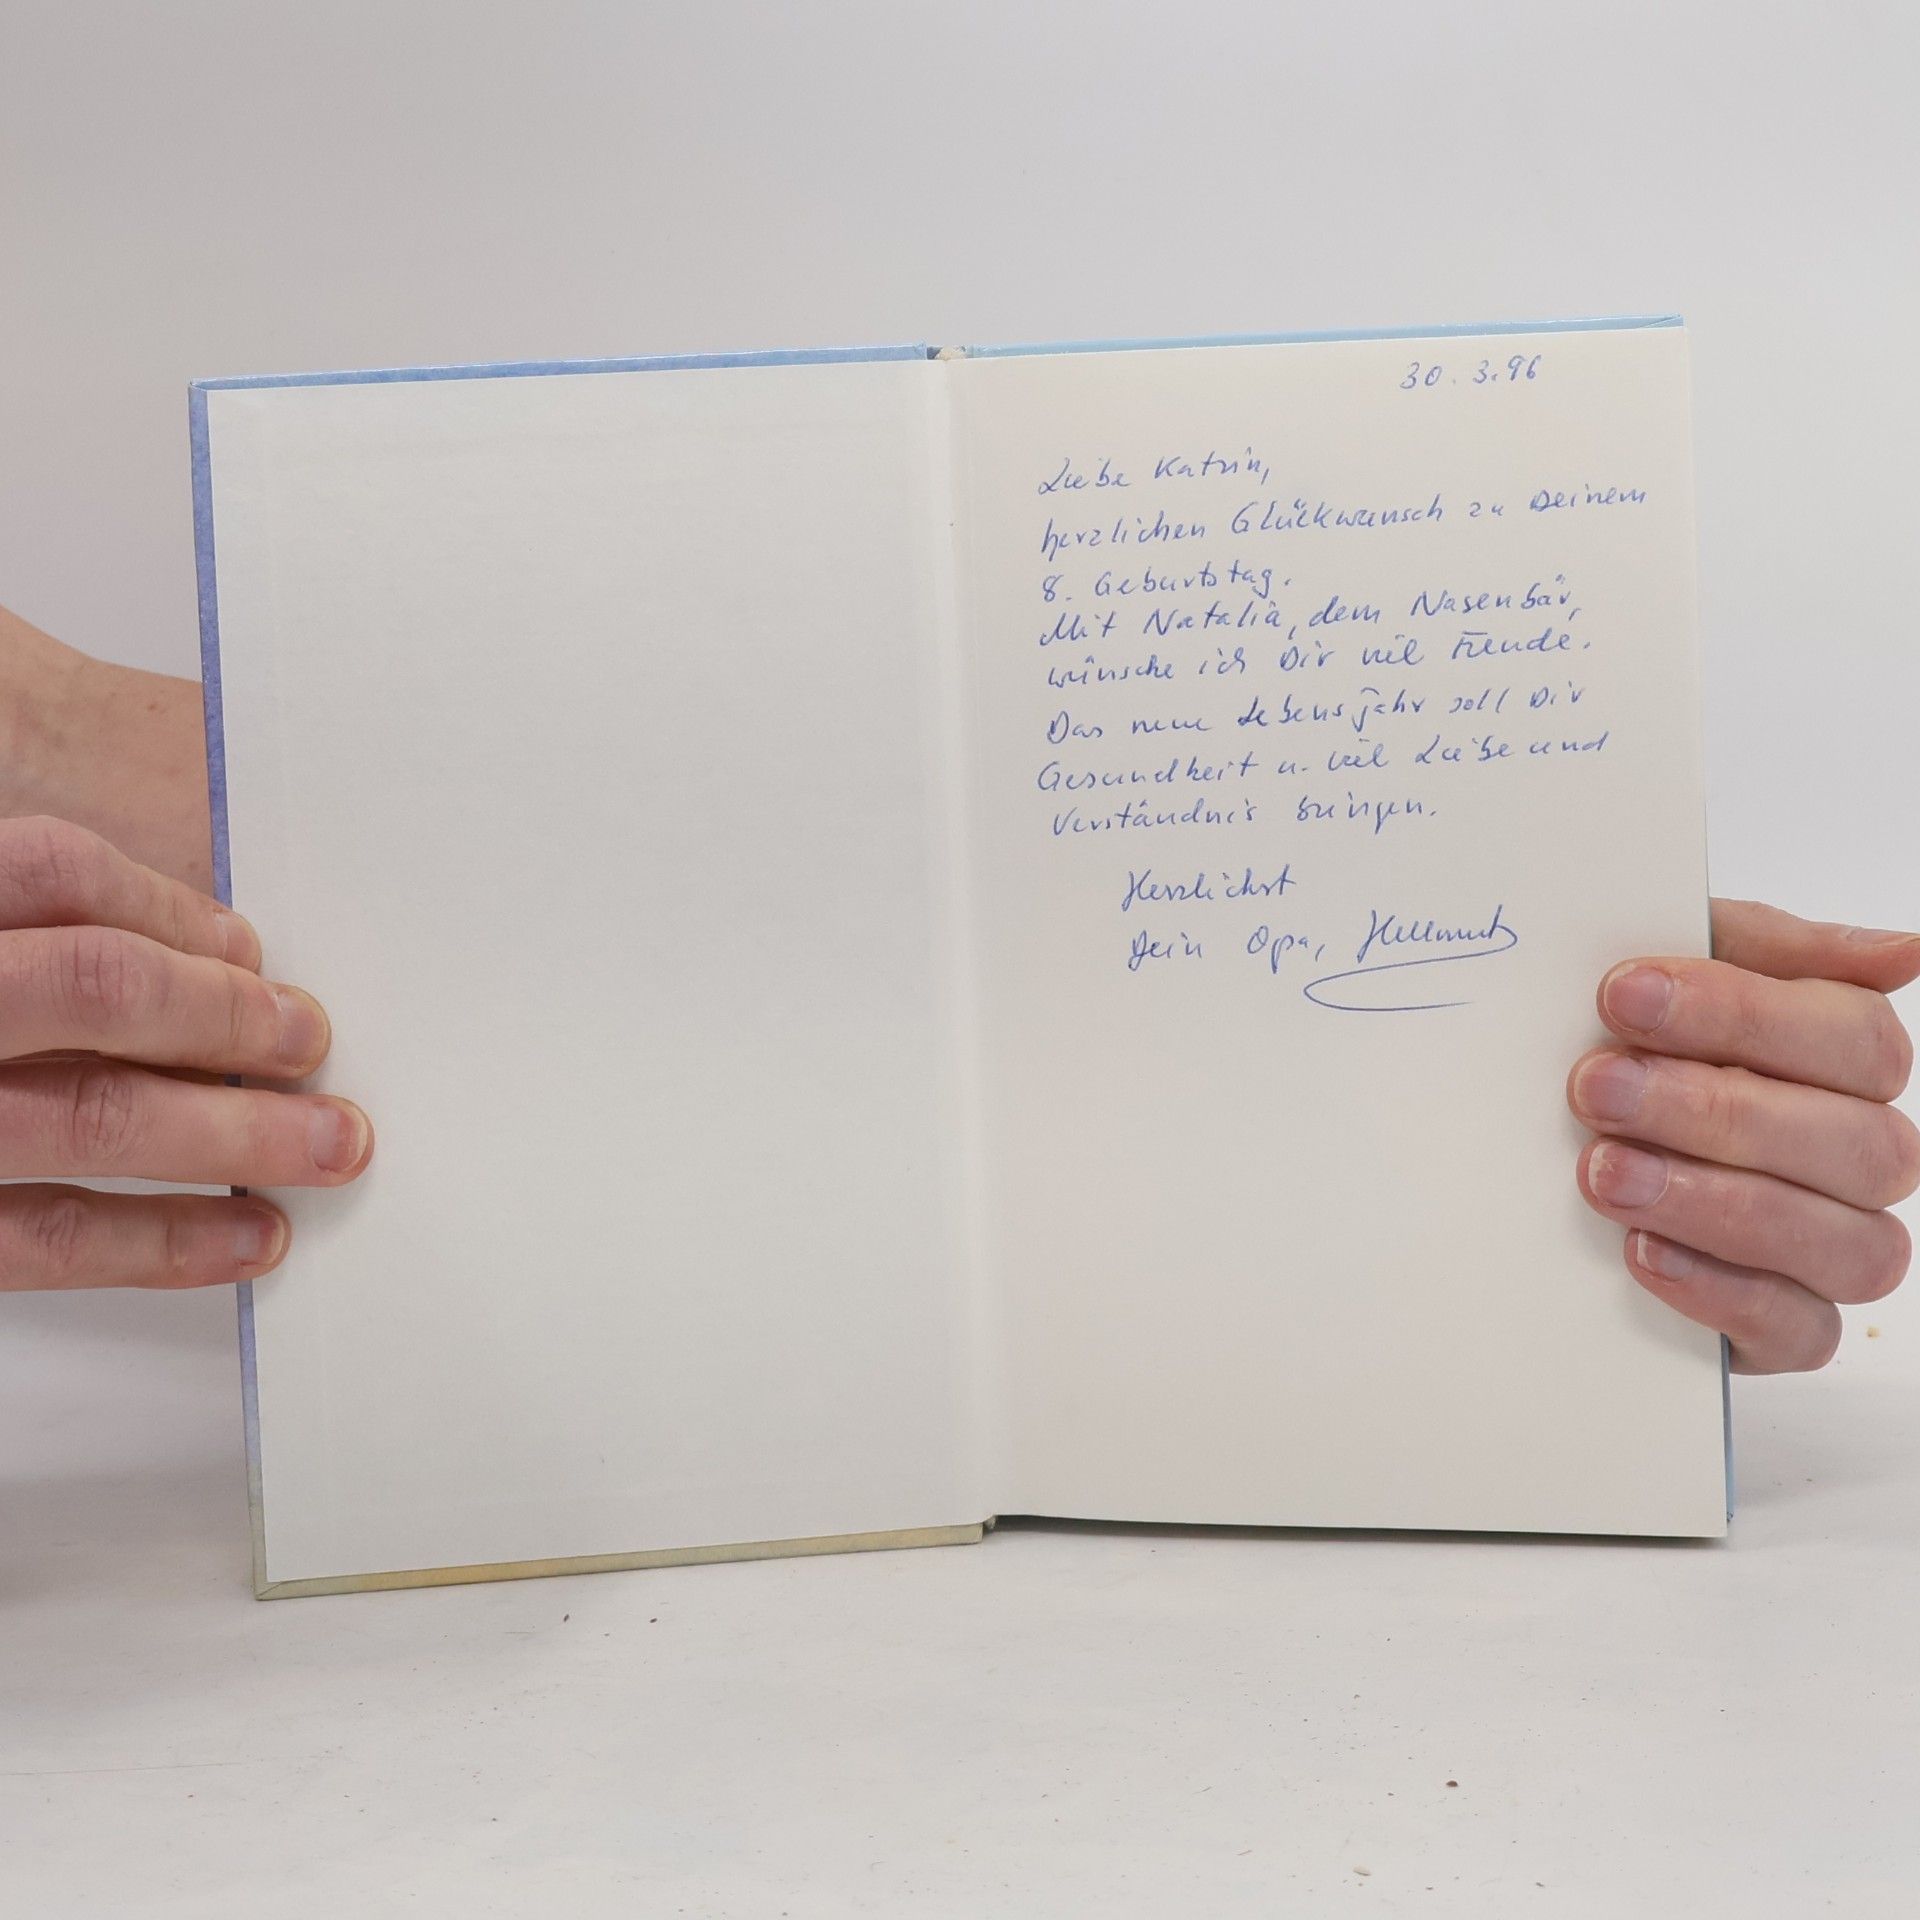 30.3.96
Liebe Katrin,
herzlichen Glückwunsch zu Deinem
8. Geburtstag.
Mit Natalia, dem Nasenbär,
wünsche ich Dir viel Freude.
Das neue Lebensjahr soll Dir
Gesundheit u. viel Liebe und
Verständnis bringen.
Herzlichst
Dein Opa, Hellmut